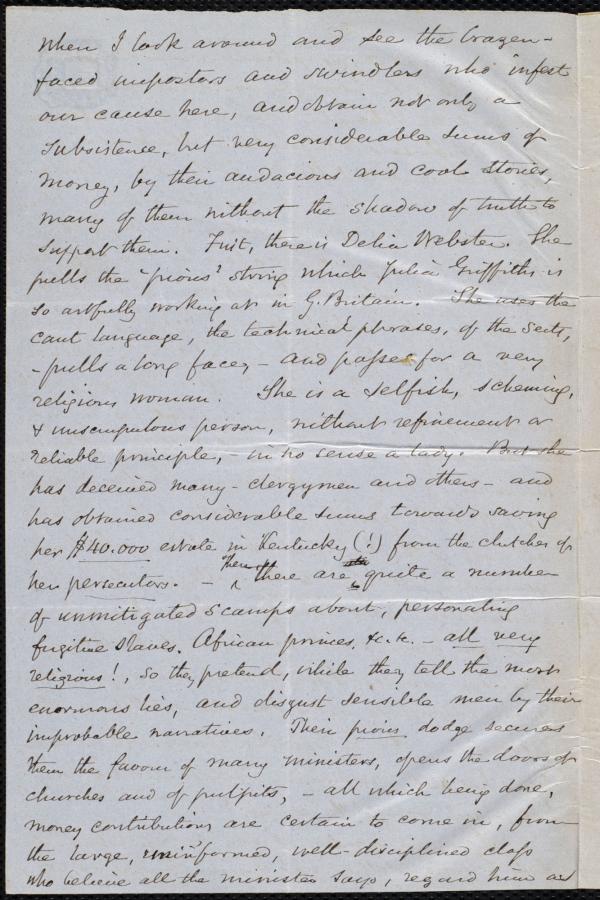 When I look around and see the brazen-
faced impostors and swindlers who infest
our cause here, and obtain not only a
subsistence, but very considerable sums of
money, by their audacious and cool stories,
many of them without the shadow of truth to
support them. First, there is Delia Webster. She
pulls the "pious" string which Julia Griffiths is
so artfully working at in G. Britain. She uses the
cant language, the technical phrases, of the Sects,
- pulls a long face, - and passes for a very
religious woman. She is a selfish, scheming,
& unscrupulous person, without refinement or
reliable principle, - in no sense a lady. But she
has deceived many - clergymen and others - and
has obtained considerable sums towards saving
her $40.000 estate in Kentucky (!) from the clutches of
her persecutors. - Then there are quite a number
of unmitigated scamps about, personating
fugitive slaves, African princes, &c. &c. - all very
religious!, so they pretend, while they tell the most
enormous lies, and disgust sensible men by their
improbable narratives. Their pious dodge secures
them the favour of many ministers, opens the doors of
churches and of pulpits, - all which being done,
money contributions are certain to come in, from
the large, uninformed, well-disciplined class
who believe all the minister says, regard him as